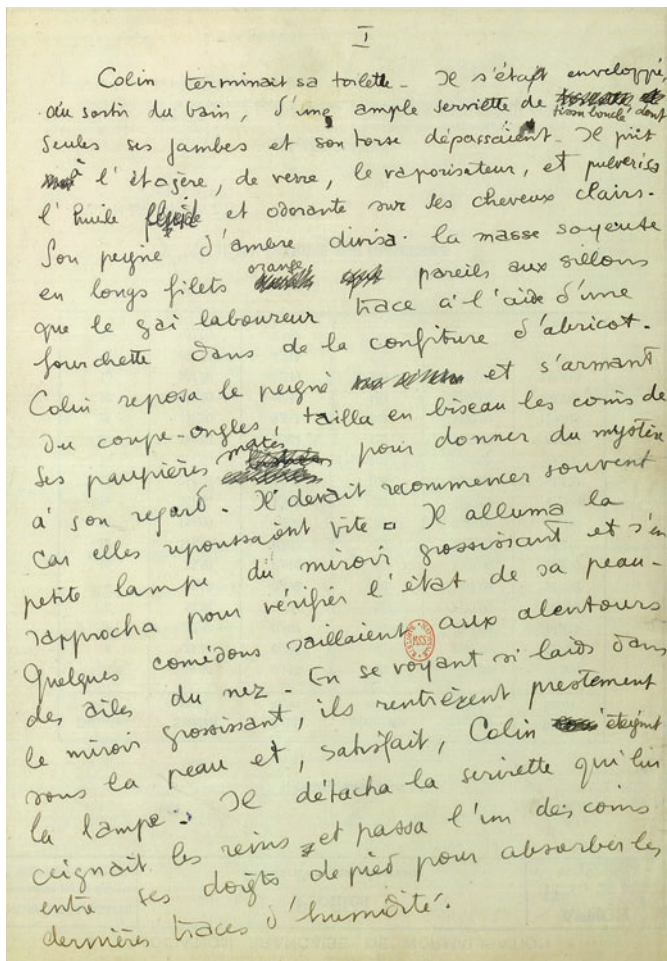 I
Colin terminait sa toilette. Il s'était enveloppé,
au sortir du bain, d'une ample serviette de
tissu bouclé dont
seules ses jambes et son torse dépassaient. Il prit
à l'étagère, de verre, le vaporisateur, et pulvérisa
l'huile fluide et odorante sur les cheveux clairs.
Son peigne d'ambre divisa la masse soyeuse
en longs filets orange pareils aux sillons
que le gai laboureur trace à l'aide d'une
fourchette dans de la confiture d'abricot.
Colin reposa le peigne et s'armant
du coupe-ongles, tailla en biseau les coins de
ses paupières mates pour donner du mystère
à son regard. Il devait recommencer souvent
car elles repoussaient vite. Il alluma la
petite lampe du miroir grossissant et s'en
rapprocha pour vérifier l'état de sa peau.
Quelques comédons saillaient aux alentours
des ailes du nez. En se voyant si laids dans
le miroir grossissant, ils rentrèrent prestement
sous la peau et, satisfait, Colin éteignit
la lampe. Il détacha la serviette qui lui
ceignait les reins et passa l'un des coins
entre ses doigts de pied pour absorber les
dernières traces d'humidité.